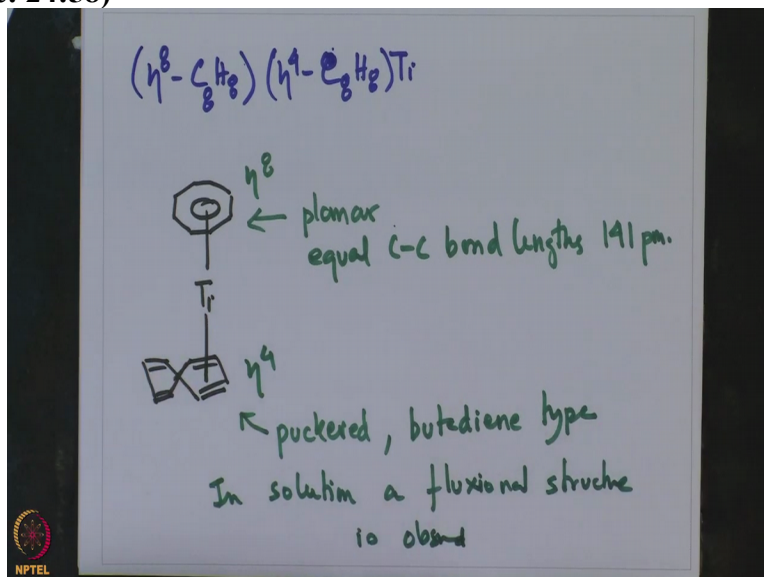 (η⁸-C₈H₈)(η⁴-C₈H₈)Ti
η⁸
← planar
equal C-C bond lengths 141 pm.
Ti
η⁴
puckered, butediene type
In solution a fluxional structure
is
NPTEL